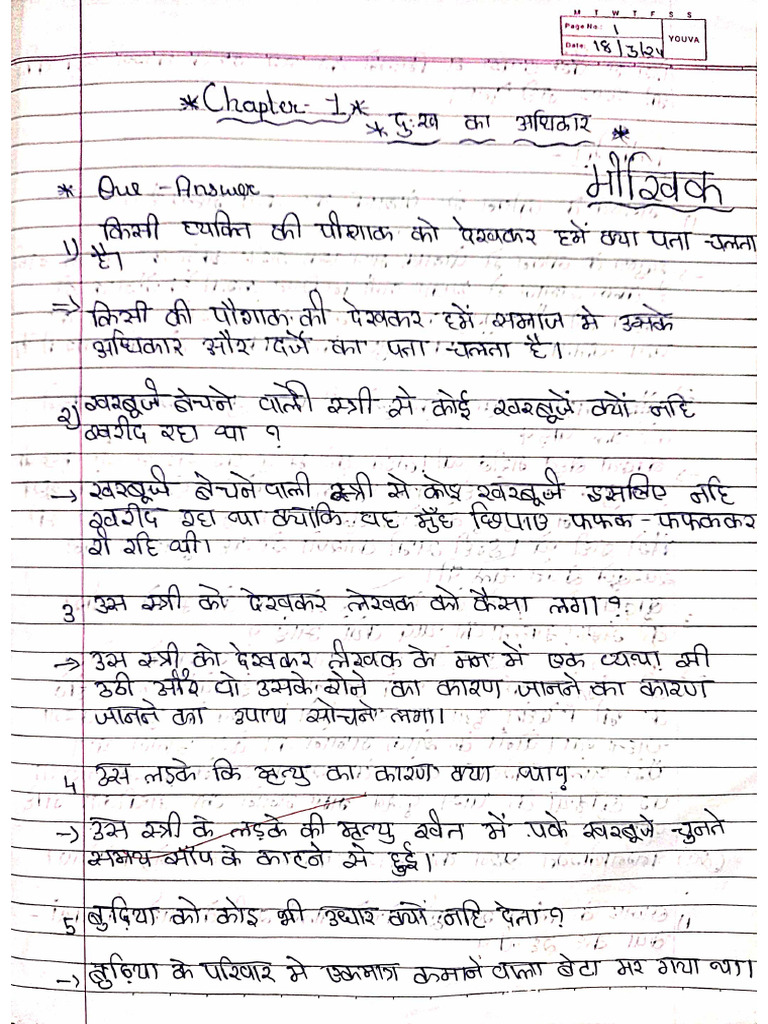 M T W T F S S
Page No.: 1
Date: 18/3/24
YOUVA
*Chapter-1*
* दुःख का अधिकार *
मौखिक
* Que - Answer
1) किसी व्यक्ति की पौशाक को देखकर हमें क्या पता चलता
है।
=> किसी की पौशाक की देखकर हमें समाज मे उसके
अधिकार और दर्जे का पता चलता है।
2) खरबूजे बेचने वाली स्त्री से कोई खरबूजें क्यों नहि
खरीद रहा था ?
-> खरबूजे बेचने वाली स्त्री से कोइ खरबूजे इसलिए नहि
खरीद रहा था क्योंकि वह मुँह छिपाए फफक-फफककर
रो रहि थी।
3 उस स्त्री को देखकर लेखक को कैसा लगा ?
-> उस स्त्री को देखकर लेखक के मन में एक व्यथा सी
उठी और वो उसके रोने का कारण जानने का कारण
जानने का उपाय सोचने लगा।
4 उस लड़के कि मृत्यु का कारण क्या था?
-> उस स्त्री के लड़के की मृत्यु खेत में पके खरबूजे चुनते
समय साँप के काटने से हुई।
5 बुढ़िया को कोइ भी उधार क्यों नहि देता ?
-> बुढ़िया के परिवार मे एकमात्र कमाने वाला बेटा मर गया था।